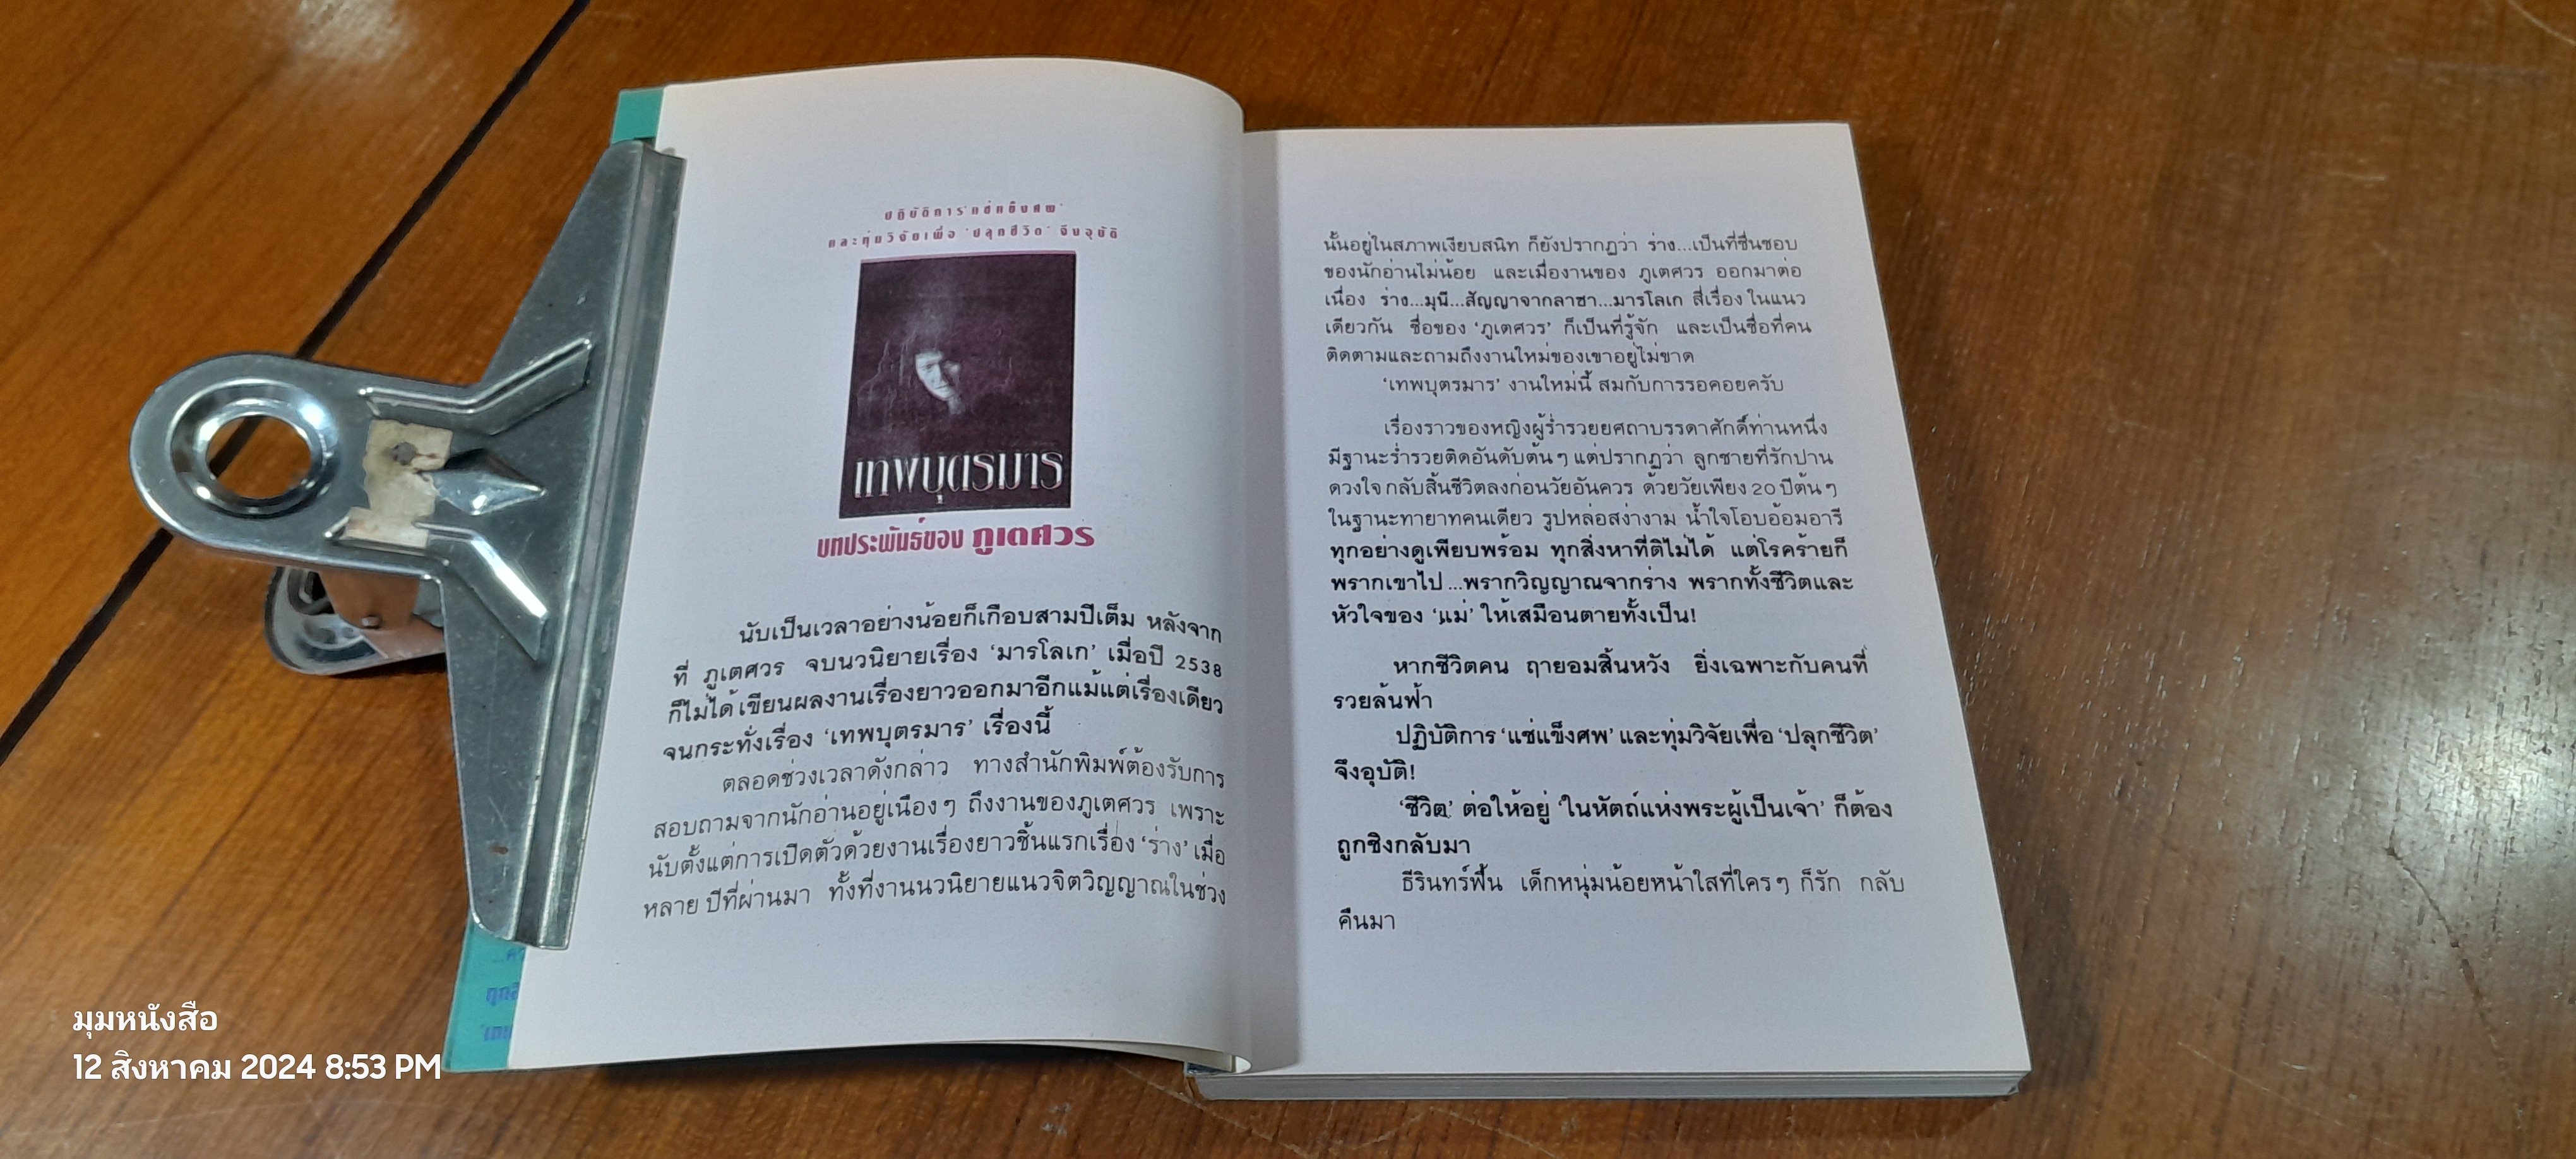 ปฏิบัติการ'แช่แข็งศพ'
และทุ่มวิจัยเพื่อ 'ปลุกชีวิต' จึงอุบัติ
เทพบุตรมาร
บทประพันธ์ของ ภูเตศวร
นับเป็นเวลาอย่างน้อยก็เกือบสามปีเต็ม หลังจาก
ที่ ภูเตศวร จบนวนิยายเรื่อง 'มารโลเก' เมื่อปี 2538
ก็ไม่ได้เขียนผลงานเรื่องยาวออกมาอีกแม้แต่เรื่องเดียว
จนกระทั่งเรื่อง 'เทพบุตรมาร' เรื่องนี้
ตลอดช่วงเวลาดังกล่าว ทางสำนักพิมพ์ต้องรับการ
สอบถามจากนักอ่านอยู่เนืองๆ ถึงงานของภูเตศวร เพราะ
นับตั้งแต่การเปิดตัวด้วยงานเรื่องยาวชิ้นแรกเรื่อง 'ร่าง' เมื่อ
หลายปีที่ผ่านมา ทั้งที่งานนวนิยายแนวจิตวิญญาณในช่วง
นั้นอยู่ในสภาพเงียบสนิท ก็ยังปรากฏว่า ร่าง...เป็นที่ชื่นชอบ
ของนักอ่านไม่น้อย และเมื่องานของ ภูเตศวร ออกมาต่อ
เนื่อง ร่าง...มุนี...สัญญาจากลาซา...มารโลเก สี่เรื่องในแนว
เดียวกัน ชื่อของ 'ภูเตศวร' ก็เป็นที่รู้จัก และเป็นชื่อที่คน
ติดตามและถามถึงงานใหม่ของเขาอยู่ไม่ขาด
'เทพบุตรมาร' งานใหม่นี้ สมกับการรอคอยครับ
เรื่องราวของหญิงผู้ร่ำรวยยศถาบรรดาศักดิ์ท่านหนึ่ง
มีฐานะร่ำรวยติดอันดับต้นๆ แต่ปรากฏว่า ลูกชายที่รักปาน
ดวงใจ กลับสิ้นชีวิตลงก่อนวัยอันควร ด้วยวัยเพียง 20 ปีต้นๆ
ในฐานะทายาทคนเดียว รูปหล่อสง่างาม น้ำใจโอบอ้อมอารี
ทุกอย่างดูเพียบพร้อม ทุกสิ่งหาที่ติไม่ได้ แต่โรคร้ายก็
พรากเขาไป...พรากวิญญาณจากร่าง พรากทั้งชีวิตและ
หัวใจของ 'แม่' ให้เสมือนตายทั้งเป็น!
หากชีวิตคน ฤายอมสิ้นหวัง ยิ่งเฉพาะกับคนที่
รวยล้นฟ้า
ปฏิบัติการ 'แช่แข็งศพ' และทุ่มวิจัยเพื่อ 'ปลุกชีวิต'
จึงอุบัติ!
'ชีวิต' ต่อให้อยู่ 'ในหัตถ์แห่งพระผู้เป็นเจ้า' ก็ต้อง
ถูกชิงกลับมา
ธีรินทร์ฟื้น เด็กหนุ่มน้อยหน้าใสที่ใครๆ ก็รัก กลับ
คืนมา
มุมหนังสือ
12 สิงหาคม 2024 8:53 PM